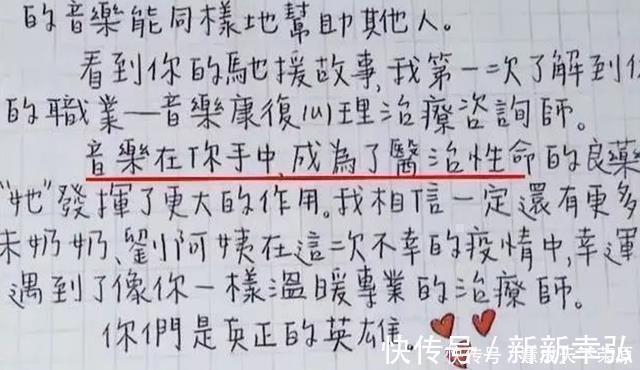 的音樂能同樣地幫助其他人。
看到你的馳援故事,我第一次了解到你
的職業—音樂康復心理治療咨詢師。
音樂在你手中,成為了醫治性命的良藥
“她”發揮了更大的作用。我相信一定還有更多
奶奶、劉阿姨在這次不幸的疫情中,幸運
遇到了像你一樣溫暖專業的治療師。
你們是真正的英雄。
快传号 / 新新幸弘
快传号